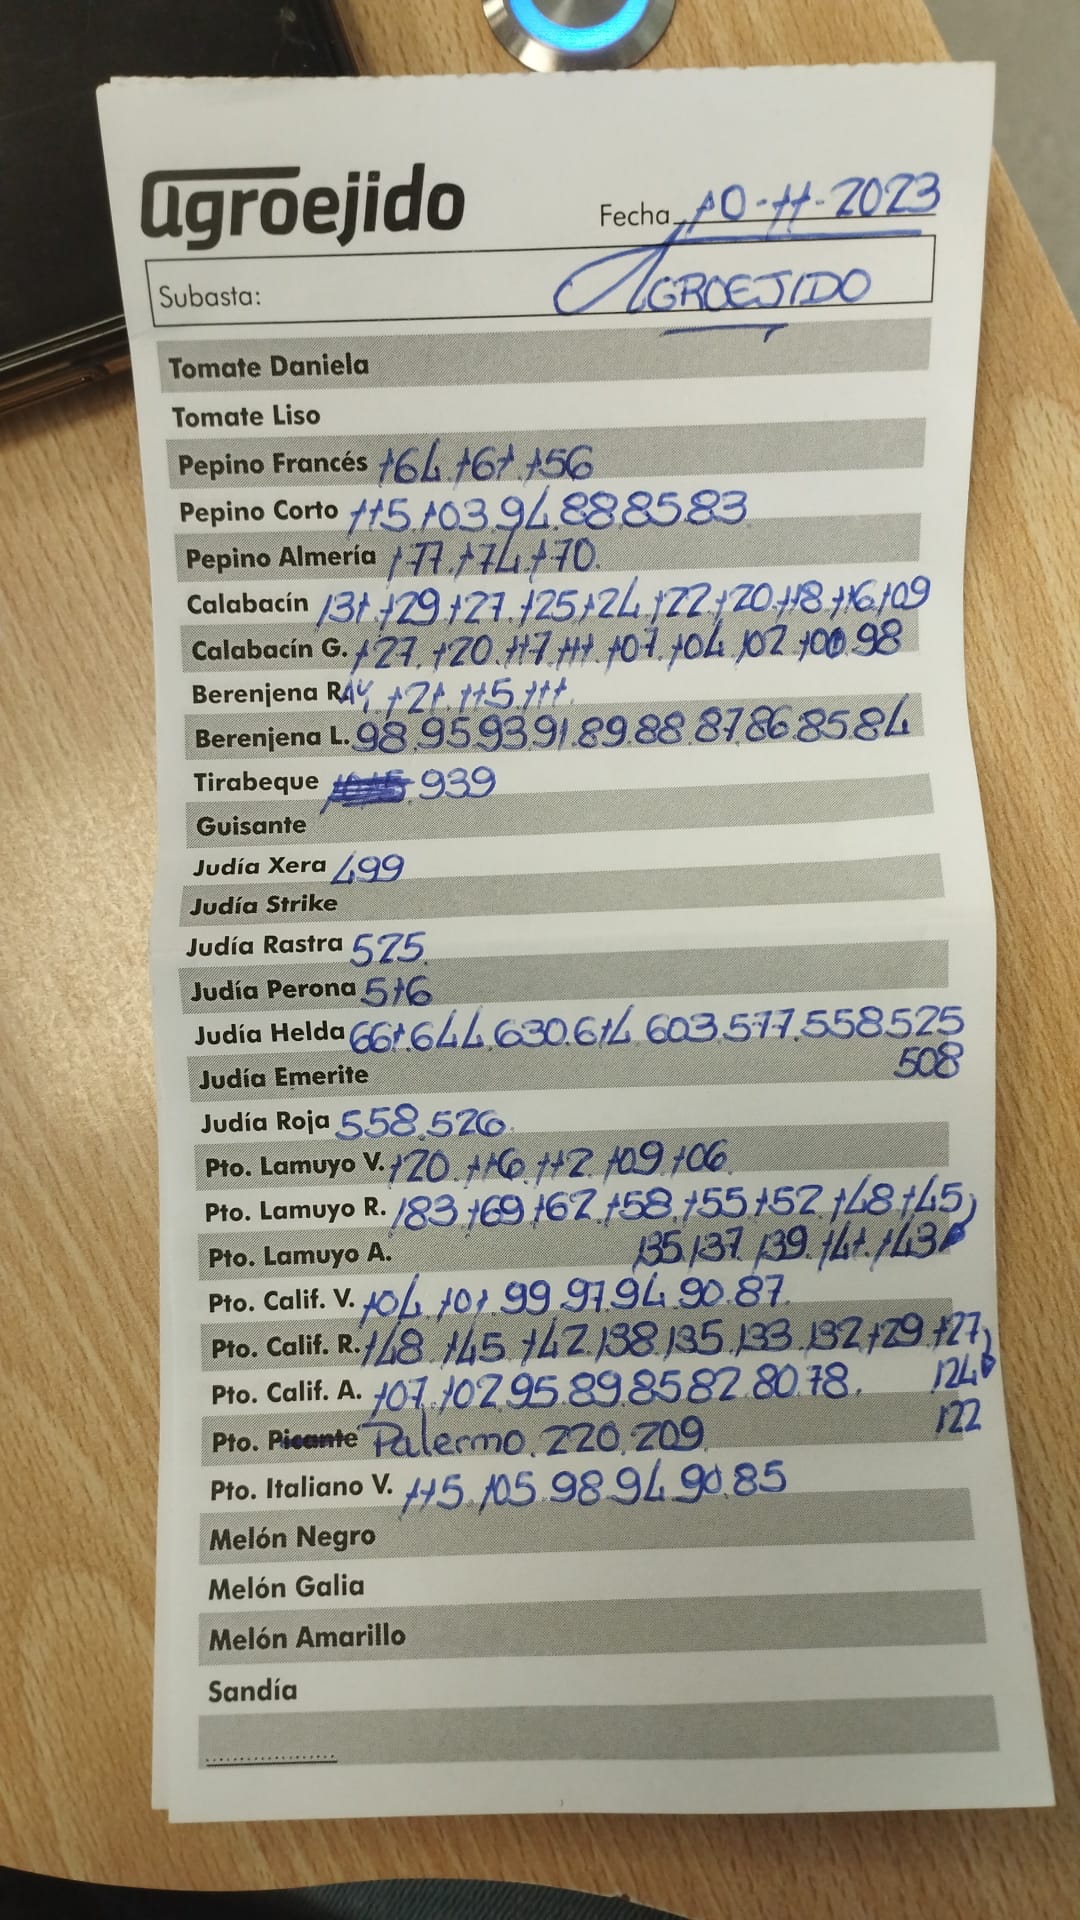 agroejido
Fecha 10-11-2023
Subasta: AGROEJIDO
Tomate Daniela
Tomate Liso
Pepino Francés 164.161.156
Pepino Corto 115.103.94.88.85.83
Pepino Almería 177.174.170.
Calabacín 131.129.127.125.124.122.120.118.116.109
Calabacín G. 127.120.117.111.107.104.102.100.98
Berenjena RAY. 121.115.111.
Berenjena L. 98.95.93.91.89.88.87.86.85.84
Tirabeque .939
Guisante
Judía Xera 499
Judía Strike
Judía Rastra 525.
Judía Perona 516
Judía Helda 661.644.630.614.603.577.558.525
508
Judía Emerite
Judía Roja 558.526.
Pto. Lamuyo V. 120.116.112.109.106.
Pto. Lamuyo R. 183.169.162.158.155.152.148.145
Pto. Lamuyo A. 135.137.139.141.143
Pto. Calif. V. 104.101.99.97.94.90.87.
Pto. Calif. R. 148.145.142.138.135.133.132.129.127
Pto. Calif. A. 107.102.95.89.85.82.80.78. 124
Pto. Picante Palermo.220.209. 122
Pto. Italiano V. 115.105.98.94.90.85
Melón Negro
Melón Galia
Melón Amarillo
Sandía